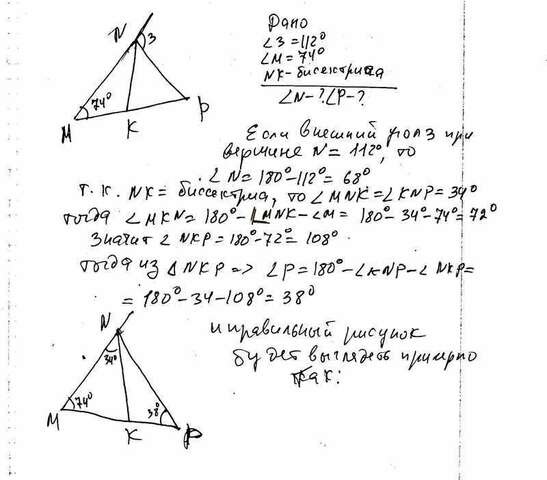 N 3
74°
M K P
Дано
∠3 = 112°
∠M = 74°
NK - бисектриса
∠N - ? ∠P - ?
Если внешний угол 3 при
вершине N = 112°, то
∠N = 180° - 112° = 68°
т.к. NK = биссектриса, то ∠MNK = ∠KNP = 34°
тогда ∠MKN = 180° - ∠MNK - ∠M = 180° - 34° - 74° = 72°
Значит ∠NKP = 180° - 72° = 108°
тогда из △NKP => ∠P = 180° - ∠KNP - ∠NKP =
= 180° - 34 - 108° = 38°
и правильный рисунок
будет выглядеть примерно
так:
N
34°
74° 38°
M K P